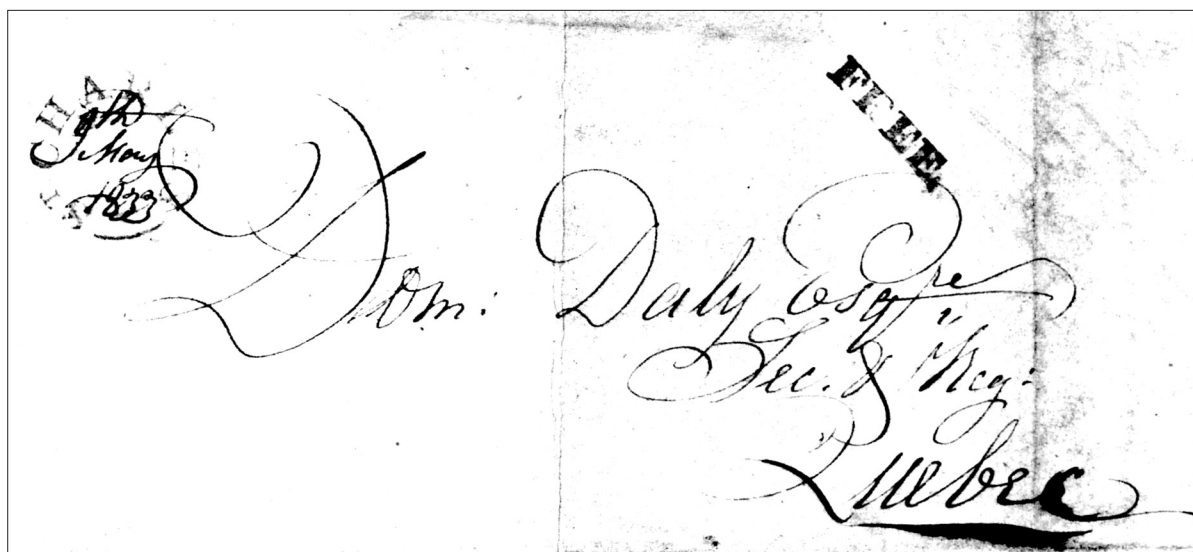 9th
May
1833
FREE
Dom: Daly Esqre
Sec. & Reg:
Quebec